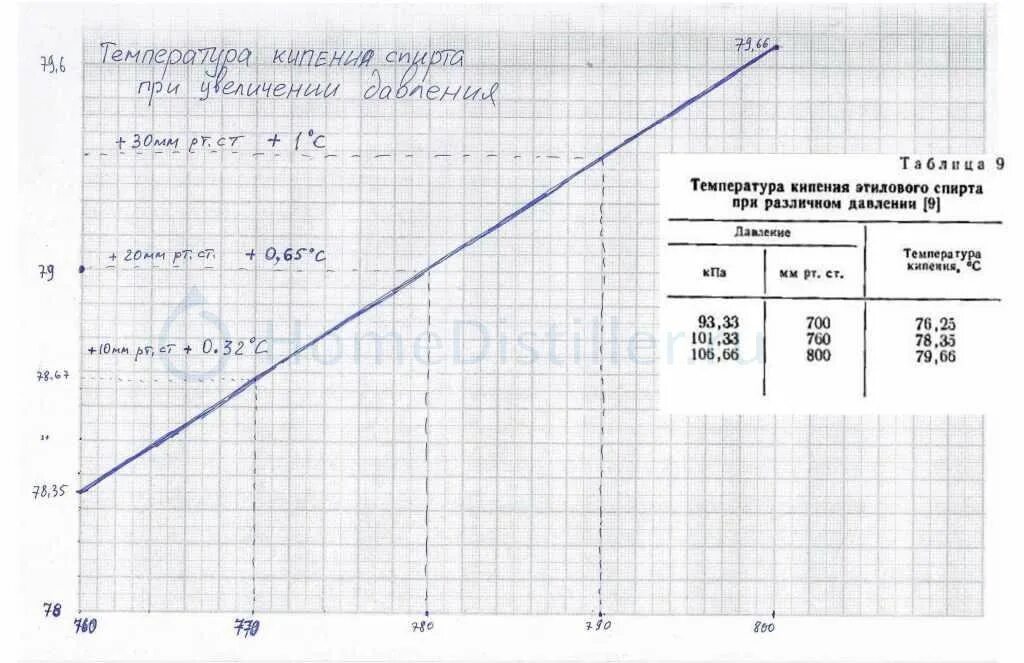 79,66
79,6
Температура кипения спирта
при увеличении давления
+30мм рт.ст + 1°С
+20мм рт.ст. + 0,65°С
79
+10мм рт,ст + 0.32°С
78.67
78,35
78
760 770 780 790 800
HomeDistiller.ru
Таблица 9
Температура кипения этилового спирта
при различном давлении [9]
Давление
Температура
кипения, °С
кПа мм рт. ст.
93,33 700 76,25
101,33 760 78,35
106,66 800 79,66